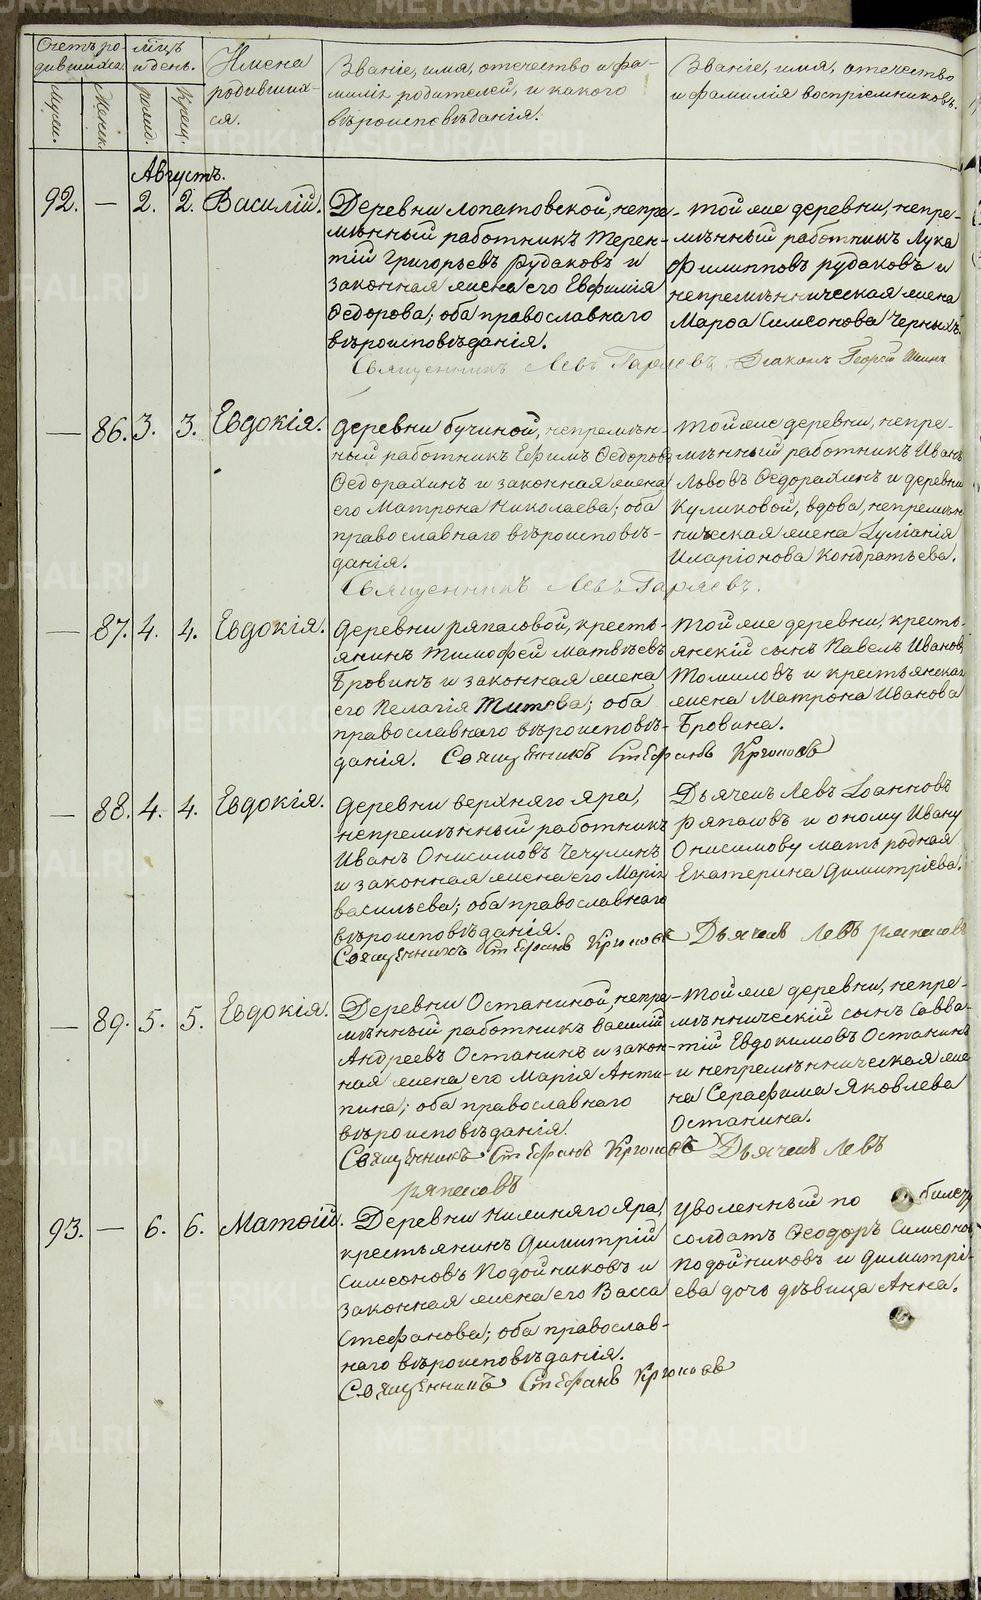 Счетъ ро-
дившихся.
Мѣсяцъ
и день.
Имена
родивших-
ся.
Званіе, имя, отечество и фа-
милія родителей, и какого
вѣроисповѣданія.
Званіе, имя, отечество
и фамилія воспріемниковъ.
Муж.
Женск.
рожд.
Крещ.
Августъ.
92. — 2. 2. Василій.
Деревни Лопатовской, непре-
мѣнный работникъ Терен-
тій Григорьевъ Рудаковъ и
законная жена его Евфимія
Ѳедорова; оба православнаго
вѣроисповѣданія.
той же деревни, непре-
мѣнный работникъ Лука
Филипповъ Рудаковъ и
непремѣнническая жена
Марѳа Симеонова Черныхъ.
Священникъ Левъ Гаряевъ. Діаконъ Георгій
— 86. 3. 3. Евдокія.
Деревни Бучиной, непремѣн-
ный работникъ Ефимъ Ѳедоровъ
Ѳедорахинъ и законная жена
его Матрона Николаева; оба
православнаго вѣроисповѣ-
данія.
той же деревни, непре-
мѣнный работникъ Иванъ
Львовъ Ѳедорахинъ и деревни
Куликовой, вдова, непремѣн-
ническая жена Іуліанія
Иларіонова Кондратьева.
Священникъ Левъ Гаряевъ.
— 87. 4. 4. Евдокія.
Деревни Ряпасовой, кресть-
янинъ Тимофей Матвѣевъ
Бровинъ и законная жена
его Пелагія Титова; оба
православнаго вѣроисповѣ-
данія. Священникъ Стефанъ Крюковъ
той же деревни, кресть-
янскій сынъ Павелъ Ивановъ
Томиловъ и крестьянская
жена Матрона Иванова
Бровина.
— 88. 4. 4. Евдокія.
Деревни Верхняго Яра,
непремѣнный работникъ
Иванъ Онисимовъ Чечулинъ
и законная жена его Марія
Васильева; оба православнаго
вѣроисповѣданія.
Дьячекъ Левъ Іоанновъ
Ряпасовъ и оному Ивану
Онисимову мать родная
Екатерина Димитріева.
Священникъ Стефанъ Крюковъ Дьячекъ Левъ Ряпасовъ
— 89. 5. 5. Евдокія.
Деревни Останиной, непре-
мѣнный работникъ Василій
Андреевъ Останинъ и закон-
ная жена его Марія Анти-
пина; оба православнаго
вѣроисповѣданія.
той же деревни, непре-
мѣнническій сынъ Савва-
тій Евдокимовъ Останинъ
и непремѣнническая же-
на Серафима Яковлева
Останина.
Священникъ Стефанъ Крюковъ Дьячекъ Левъ
Ряпасовъ
93. — 6. 6. Матѳій.
Деревни Нижняго Яра,
крестьянинъ Димитрій
Симеоновъ Подойниковъ и
законная жена его Васса
Стефанова; оба православ-
наго вѣроисповѣданія.
Уволенный по билету
солдатъ Ѳеодоръ Симеоновъ
Подойниковъ и Димитрі-
ева дочь дѣвица Анна.
Священникъ Стефанъ Крюковъ
METRIKI.GASO-URAL.RU